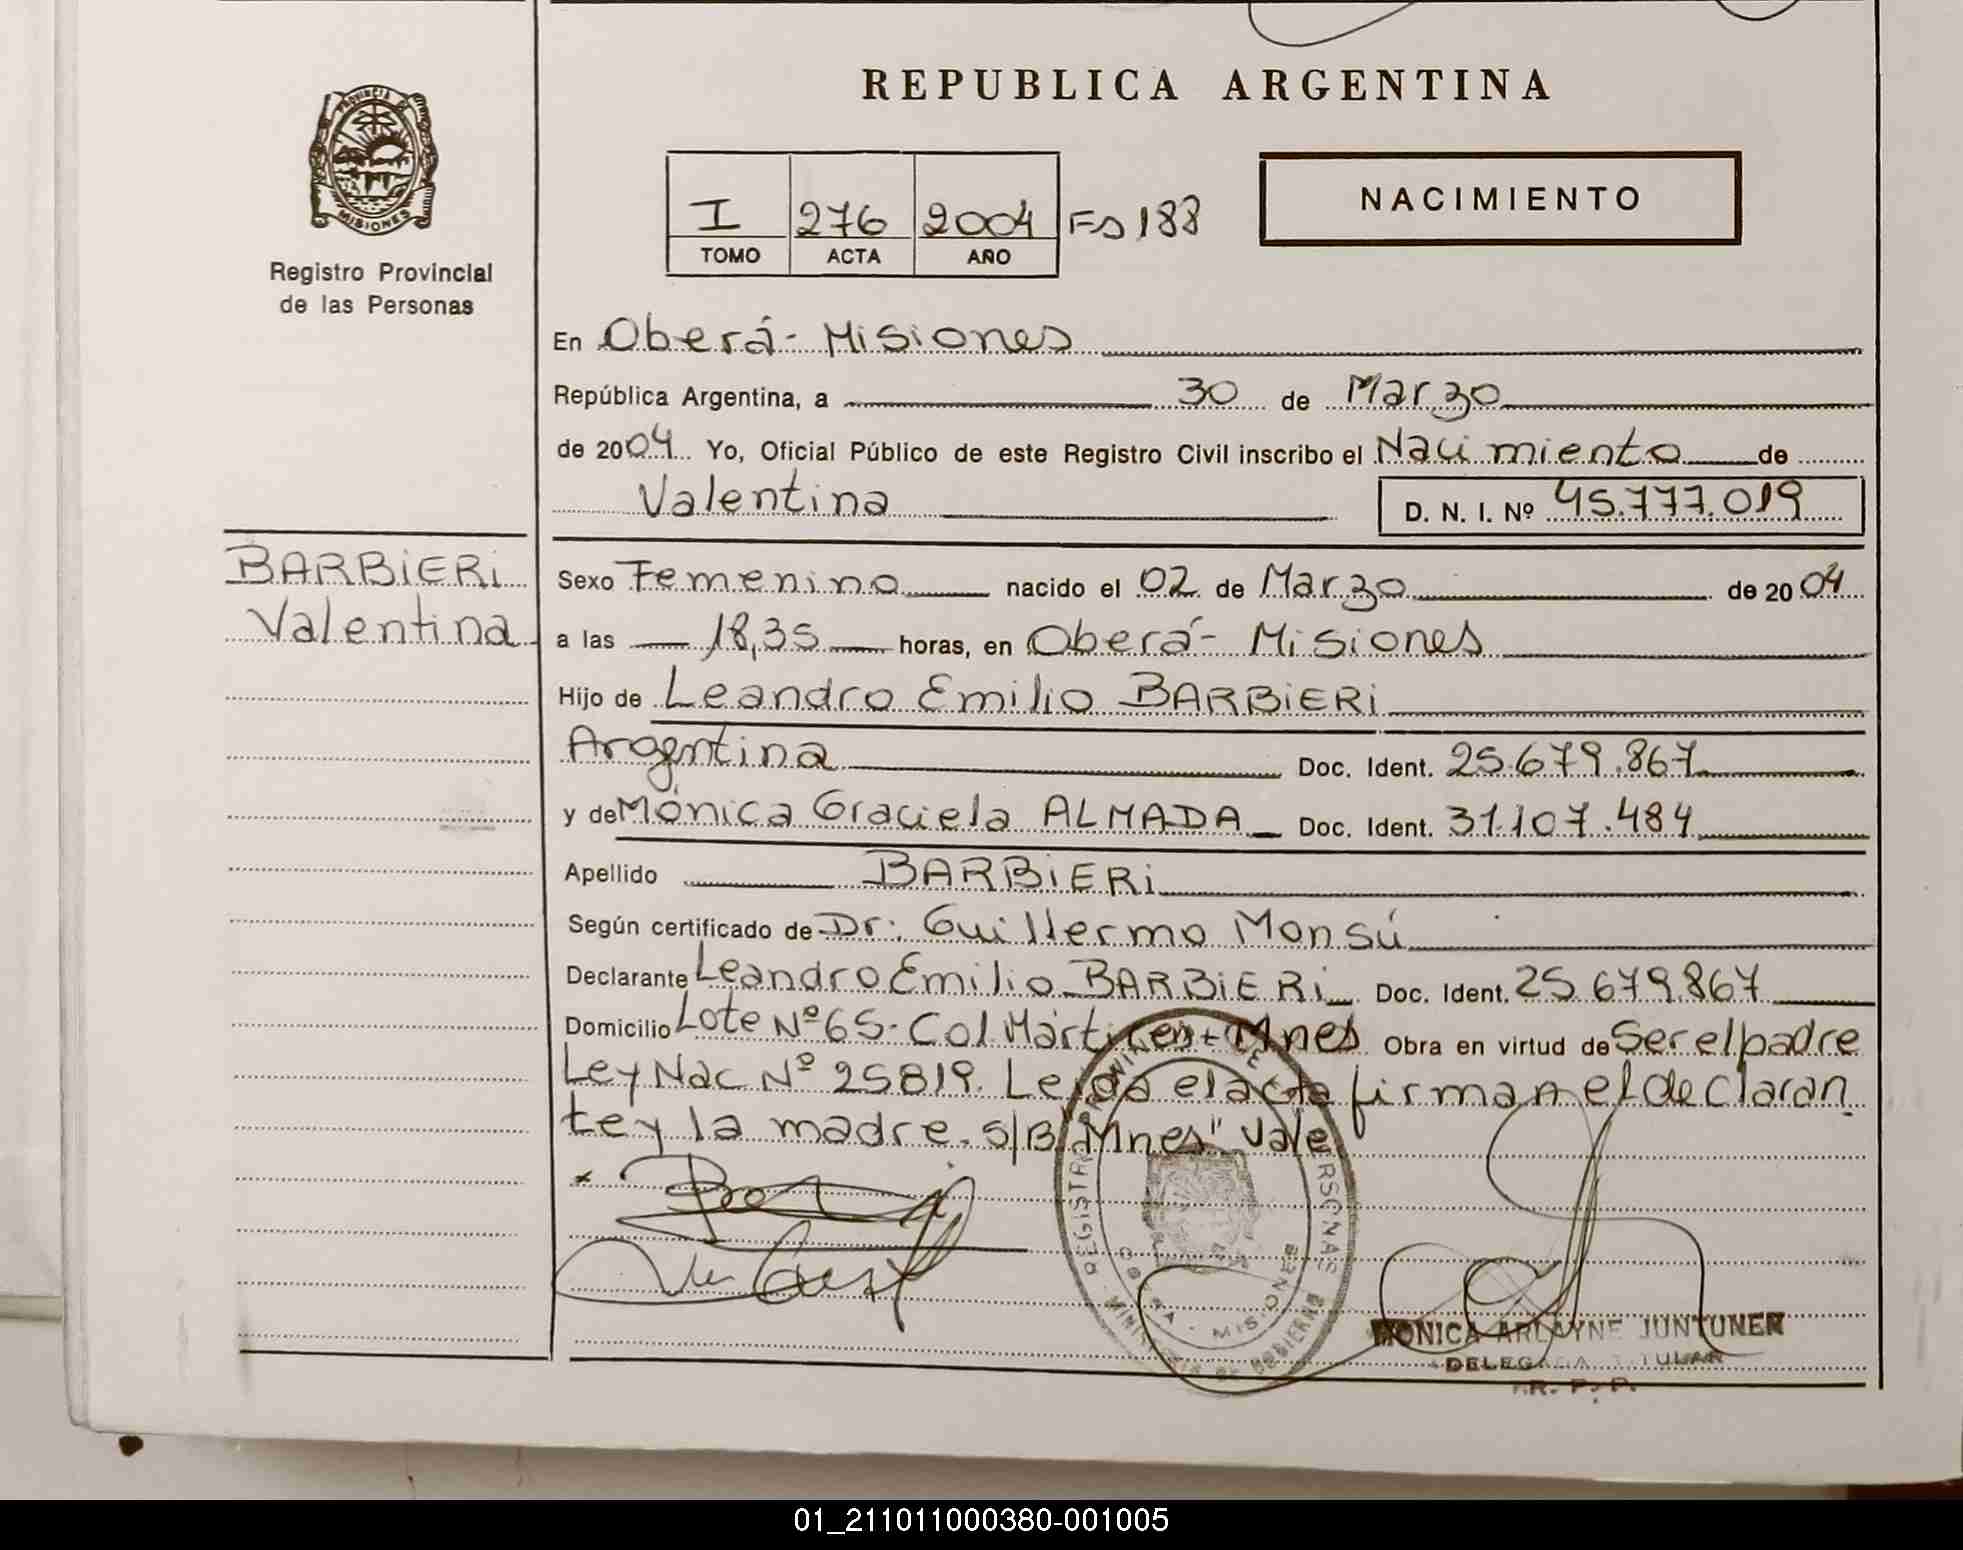 REPUBLICA ARGENTINA
PROVINCIA DE
MISIONES
Registro Provincial
de las Personas
I 276 2004 Fs 188
TOMO ACTA AÑO
NACIMIENTO
En Oberá - Misiones
República Argentina, a 30 de Marzo
de 2004 Yo, Oficial Público de este Registro Civil inscribo el Nacimiento de
Valentina D. N. I. Nº 45.777.019
BARBiERi
Valentina
Sexo Femenino nacido el 02 de Marzo de 2004
a las 18,35 horas, en Oberá - Misiones
Hijo de Leandro Emilio BARBiERi
Argentina Doc. Ident. 25.679.867
y de Mónica Graciela ALMADA Doc. Ident. 31.107.484
Apellido BARBiERi
Según certificado de Dr: Guillermo Monsú
Declarante Leandro Emilio BARBiERi Doc. Ident. 25.679.867
Domicilio Lote Nº 65 - Col Mártires - Mnes Obra en virtud de Ser el padre
Ley Nac Nº 25819. Leida el acta firman el declaran
te y la madre. S/B "Mnes" Vale
OBERA - MISIONES
MINISTERIO DE GOBIERNO
MONICA ARLAYNE JUNTUNEN
DELEGADA TITULAR
R. P. P.
01_211011000380-001005